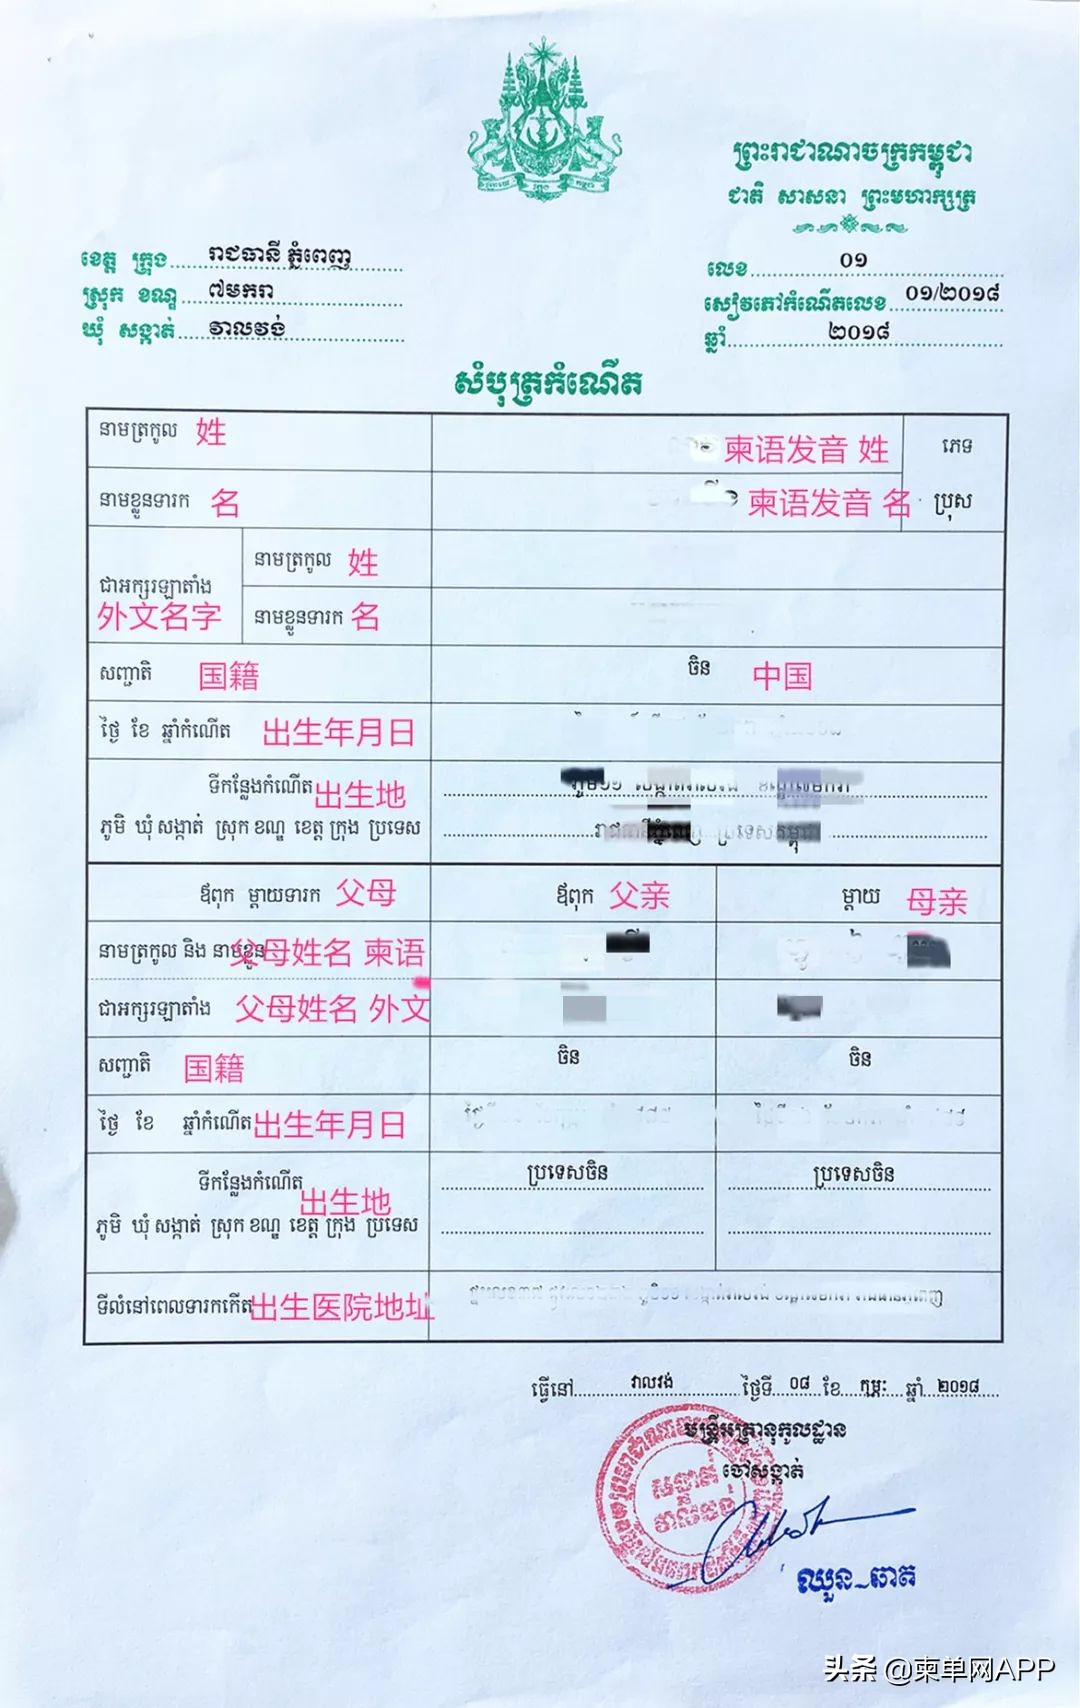 ព្រះរាជាណាចក្រកម្ពុជា
ជាតិ សាសនា ព្រះមហាក្សត្រ
ខេត្ត ក្រុង រាជធានី ភ្នំពេញ
ស្រុក ខណ្ឌ ៧មករា
ឃុំ សង្កាត់ វាលវង់
លេខ ០១
សៀវភៅកំណើតលេខ ០១/២០១៨
ឆ្នាំ ២០១៨
សំបុត្រកំណើត
នាមត្រកូល 姓 柬语发音 姓 ភេទ
នាមខ្លួនទារក 名 柬语发音 名 ប្រុស
ជាអក្សរឡាតាំង 外文名字
នាមត្រកូល 姓
នាមខ្លួនទារក 名
សញ្ជាតិ 国籍 ចិន 中国
ថ្ងៃ ខែ ឆ្នាំកំណើត 出生年月日
ទីកន្លែងកំណើត 出生地
ភូមិ ឃុំ សង្កាត់ ស្រុក ខណ្ឌ ខេត្ត ក្រុង ប្រទេស
ឪពុក ម្តាយទារក 父母 ឪពុក 父亲 ម្តាយ 母亲
នាមត្រកូល និង នាមខ្លួន 父母姓名 柬语
ជាអក្សរឡាតាំង 父母姓名 外文
សញ្ជាតិ 国籍 ចិន ចិន
ថ្ងៃ ខែ ឆ្នាំកំណើត 出生年月日
ទីកន្លែងកំណើត 出生地 ប្រទេសចិន ប្រទេសចិន
ភូមិ ឃុំ សង្កាត់ ស្រុក ខណ្ឌ ខេត្ត ក្រុង ប្រទេស
ទីលំនៅពេលទារកកើត 出生医院地址
ធ្វើនៅ វាលវង់ ថ្ងៃទី ០៨ ខែ កុម្ភៈ ឆ្នាំ ២០១៨
មន្ត្រីអត្រានុកូលដ្ឋាន
ចៅសង្កាត់
សង្កាត់
វាលវង់
ឈួន ឆាត
头条 @柬单网APP